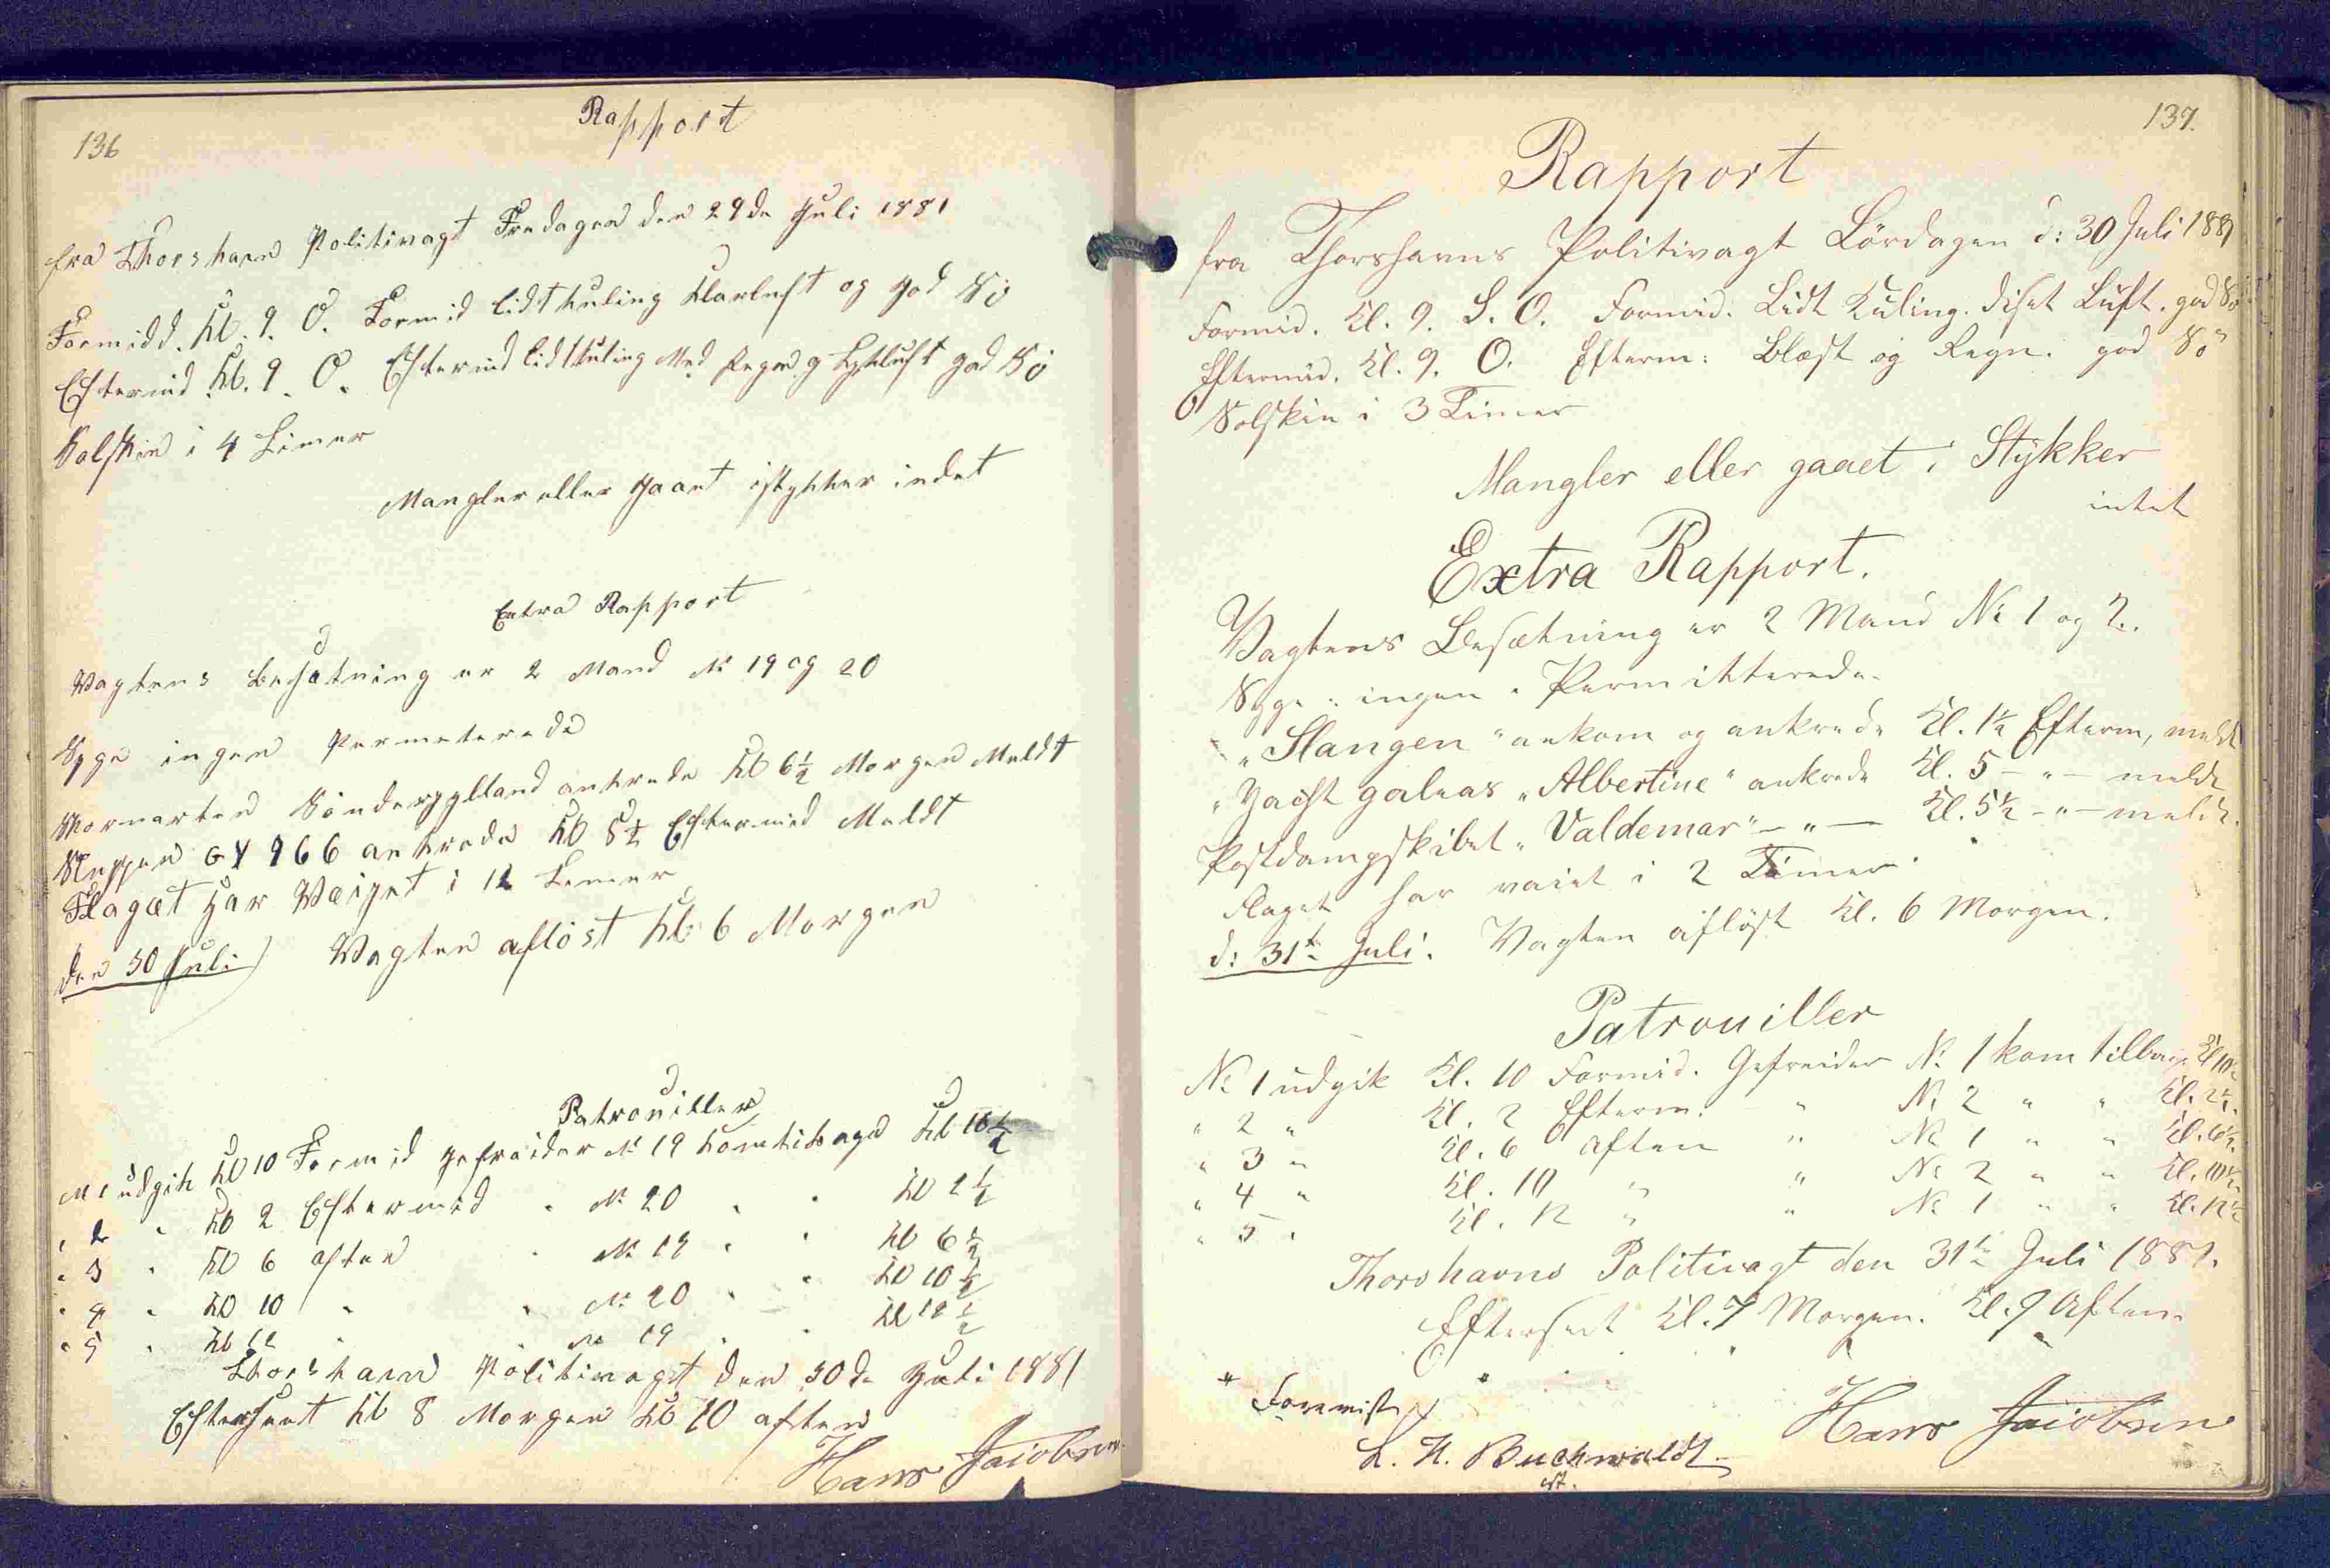 136
Rapport
fra Thorshavn Politivagt Fredagen den 29de Juli 1881
Formidd. Kl. 9. O. Formid lidt Kuling Klarluft og god Sö
Eftermid Kl. 9. O. Eftermid lidt Kuling Med Regn og god Sö
Solskin i 4 Timer
Mangler eller gaaet istykker indet
Extra Rapport
Vagtens Besætning er 2 Mand No 19 og 20
Syge ingen Permeterede
Skonnerten Sönderjylland ankrede Kl 6½ Morgen Meldt
Sluppen GY 966 ankrede Kl 5½ Eftermid Meldt
Flaget har Vaijet i 12 Timer
den 30 Juli) Vagten aflöst Kl 6 Morgen
Patrouiller
No 1 udgik Kl 10 Formid gefreider No 19 Kom tilbage Kl 10½
" 2 " Kl 2 Eftermid " No 20 " " Kl 2½
" 3 " Kl 6 aften " No 19 " " Kl 6½
" 4 " Kl 10 " " No 20 " " Kl 10½
" 5 " Kl 12 " " No 19 " " Kl 12½
Thorshavn Politivagt den 30de Juli 1881
Efterseet Kl 8 Morgen Kl 10 aften
Hans Jacobsen
137.
Rapport
fra Thorshavns Politivagt Lördagen d: 30 Juli 1881
Formid. Kl. 9. S. O. Formid. Lidt Kuling. diset Luft. god Sö
Eftermid. Kl. 9. O. Efterm: Blæst og Regn. god Sö
Solskin i 3 Timer
Mangler eller gaaet i Stykker
intet
Extra Rapport.
Vagtens Besætning er 2 Mand No 1 og 2.
Syge: ingen. Permitterede.
"Slangen" ankom og ankrede Kl. 1½ Efterm, meldt
"Yacht galeas "Albertine" ankrede Kl. 5 - " - meldt
Postdampskibet "Valdemar" - " - Kl. 5½ - " - meldt.
Flaget har vaiet i 2 Timer.
d: 31te Juli. Vagten aflöst Kl. 6 Morgen.
Patrouiller
No 1 udgik Kl. 10 Formid. Gefreider No 1 kom tilbage Kl 10½
" 2 " Kl. 2 Efterm. " No 2 " " Kl. 2½.
" 3 " Kl. 6 Aften " No 1 " " Kl. 6½.
" 4 " Kl. 10 " " No 2 " " Kl. 10½.
" 5 " Kl. 12 " " No 1 " " Kl. 12½
Thorshavns Politivagt den 31te Juli 1881.
Efterseet Kl. 7 Morgen. Kl. 9 Aften
Hans Jacobsen
L. H. Buchwaldt